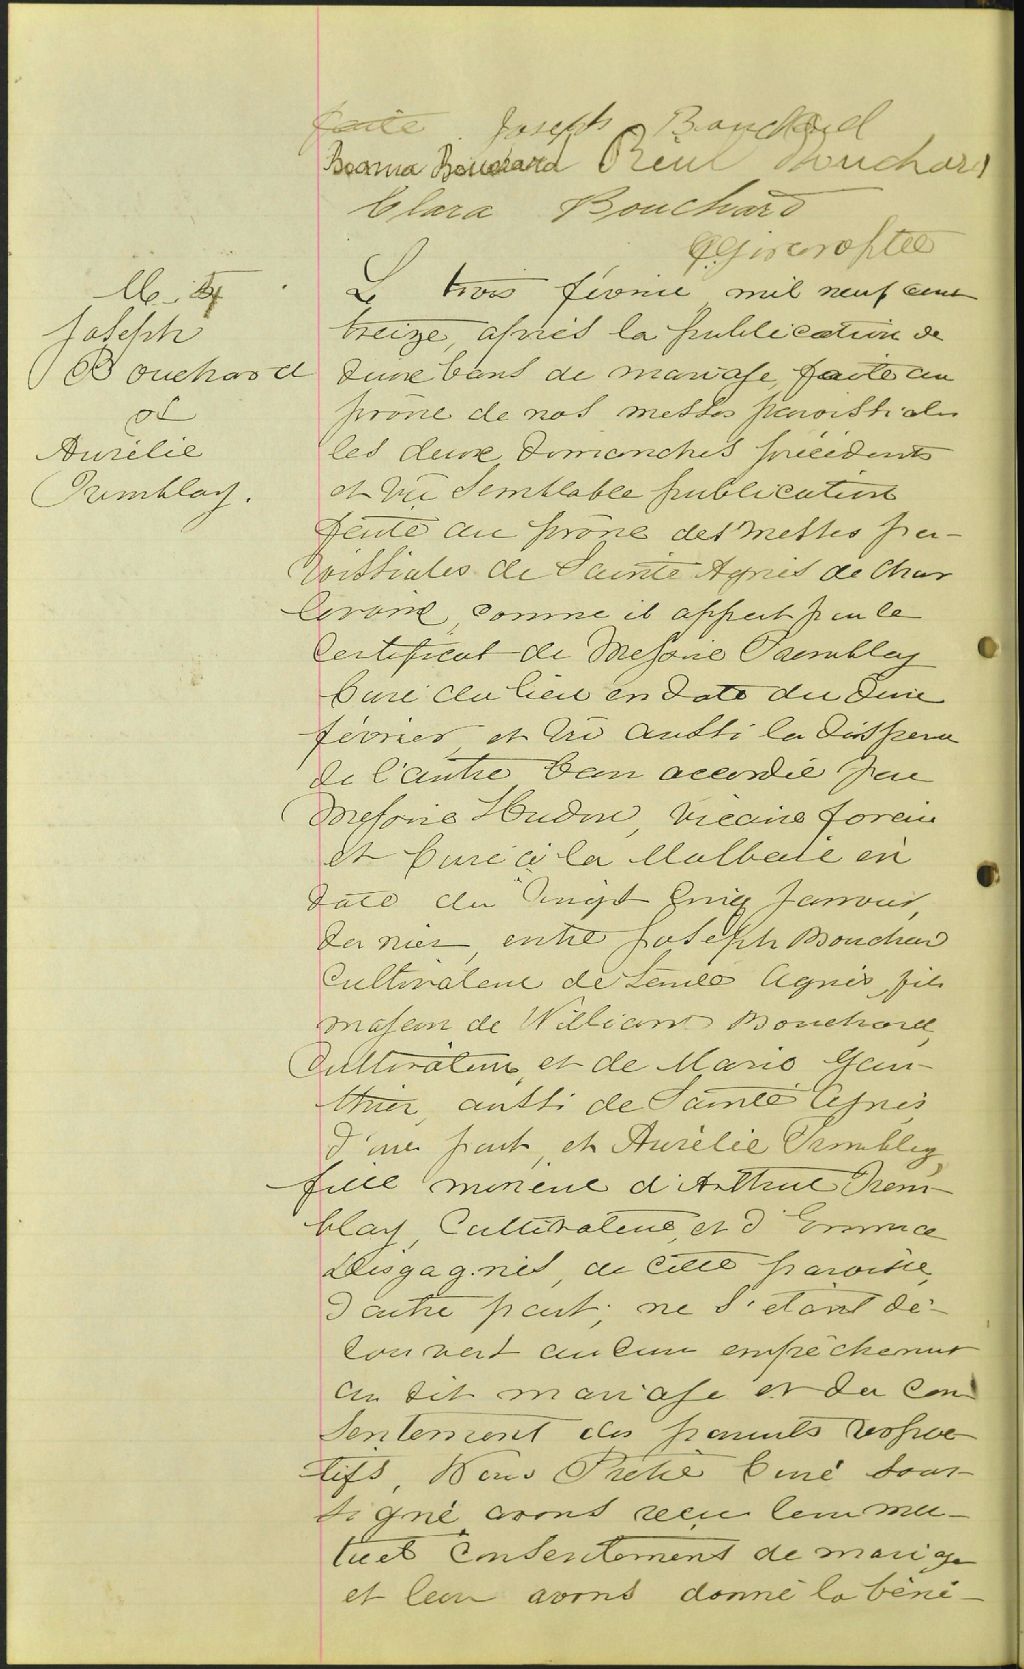 faite Joseph Bouchard
Bouchard Réul Bouchard
Clara Bouchard
M. 4
Joseph
Bouchard
et
Aurélie
Tremblay.
Le trois févrié mil neuf cent
treize, après la publication de
deux bans de mariage, faite au
prône de nos messes paroissiales
les deux dimanches précédents
et vû semblable publication
faite au prône des messes pa-
roissiales de Sainte Agnès de Char
levoix, comme il appert par le
certificat de Messire Tremblay
Curé du lieu en date du deux
février, et vû aussi la dispense
de l'autre ban accordée par
Messire Hudon, vicaire forain
et Curé à la Malbaie en
date du vingt cinq janvier,
dernier, entre Joseph Bouchard
Cultivateur de Sainte Agnès, fils
majeur de William Bouchard,
Cultivateur, et de Marie Gau-
thier, aussi de Sainte Agnès
d'une part, et Aurélie Tremblay,
fille mineure d'Arthur Trem-
blay, Cultivateur, et d'Emma
Desgagnés, de cette paroisse,
d'autre part; ne s'étant dé-
couvert aucun empêchement
au dit mariage et du con
sentement des parents respec
tifs, Nous Prêtre Curé sous-
signé avons reçu leur mu-
tuel consentement de mariage
et leur avons donné la béné-